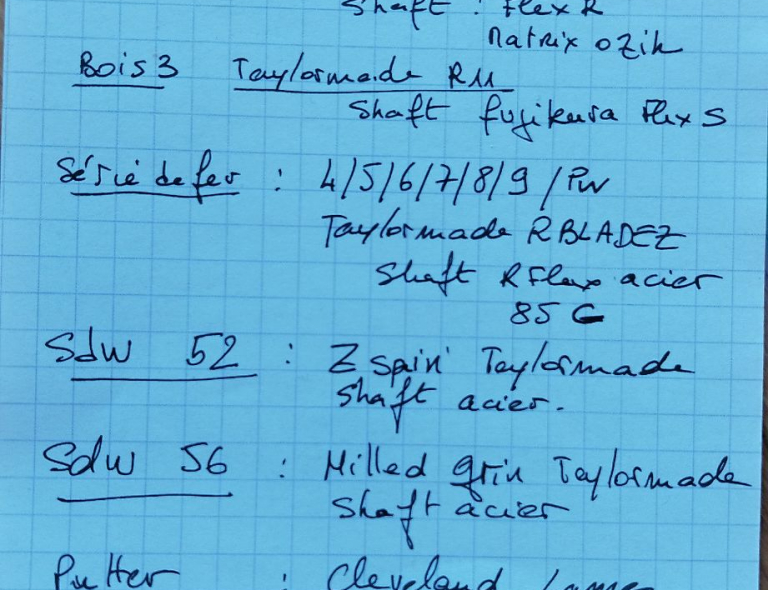 Shaft : Flex R
Matrix ozik
Bois 3 Taylormade R11
Shaft fujikura Flex S
Série de fer : 4/5/6/7/8/9/PW
Taylormade RBLADEZ
Shaft R Flex acier
85 G
Sdw 52 : Z spin Taylormade
Shaft acier.
Sdw 56 : Milled grin Taylormade
Shaft acier
Putter : Cleveland